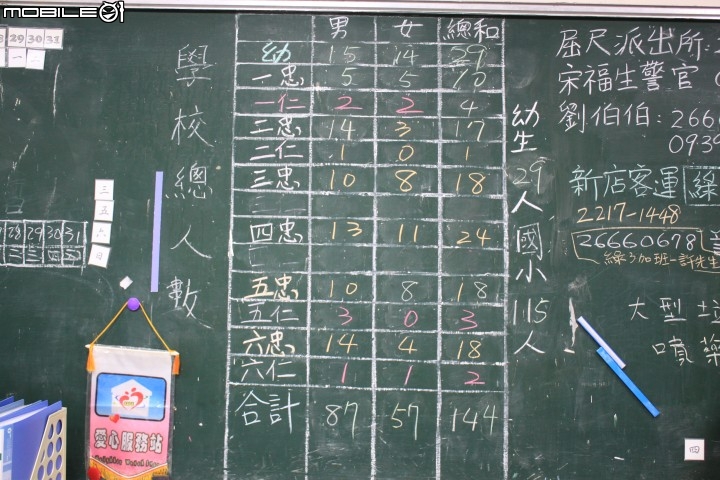 MOBILE01
29 30 31
一 二
28 29 30 31
三
五
六
日
學校總人數
男 女 總和
幼 15 14 29
一忠 5 5 10
一仁 2 2 4
二忠 14 3 17
二仁 1 0 1
三忠 10 8 18
四忠 13 11 24
五忠 10 8 18
五仁 3 0 3
六忠 14 4 18
六仁 1 1 2
合計 87 57 144
幼生29人國小115人
屈尺派出所:
宋福生警官
劉伯伯:2666
0939
新店客運
2217-1448
26660678
線3加班-託先生
大型垃
噴藥
愛心服務站
四